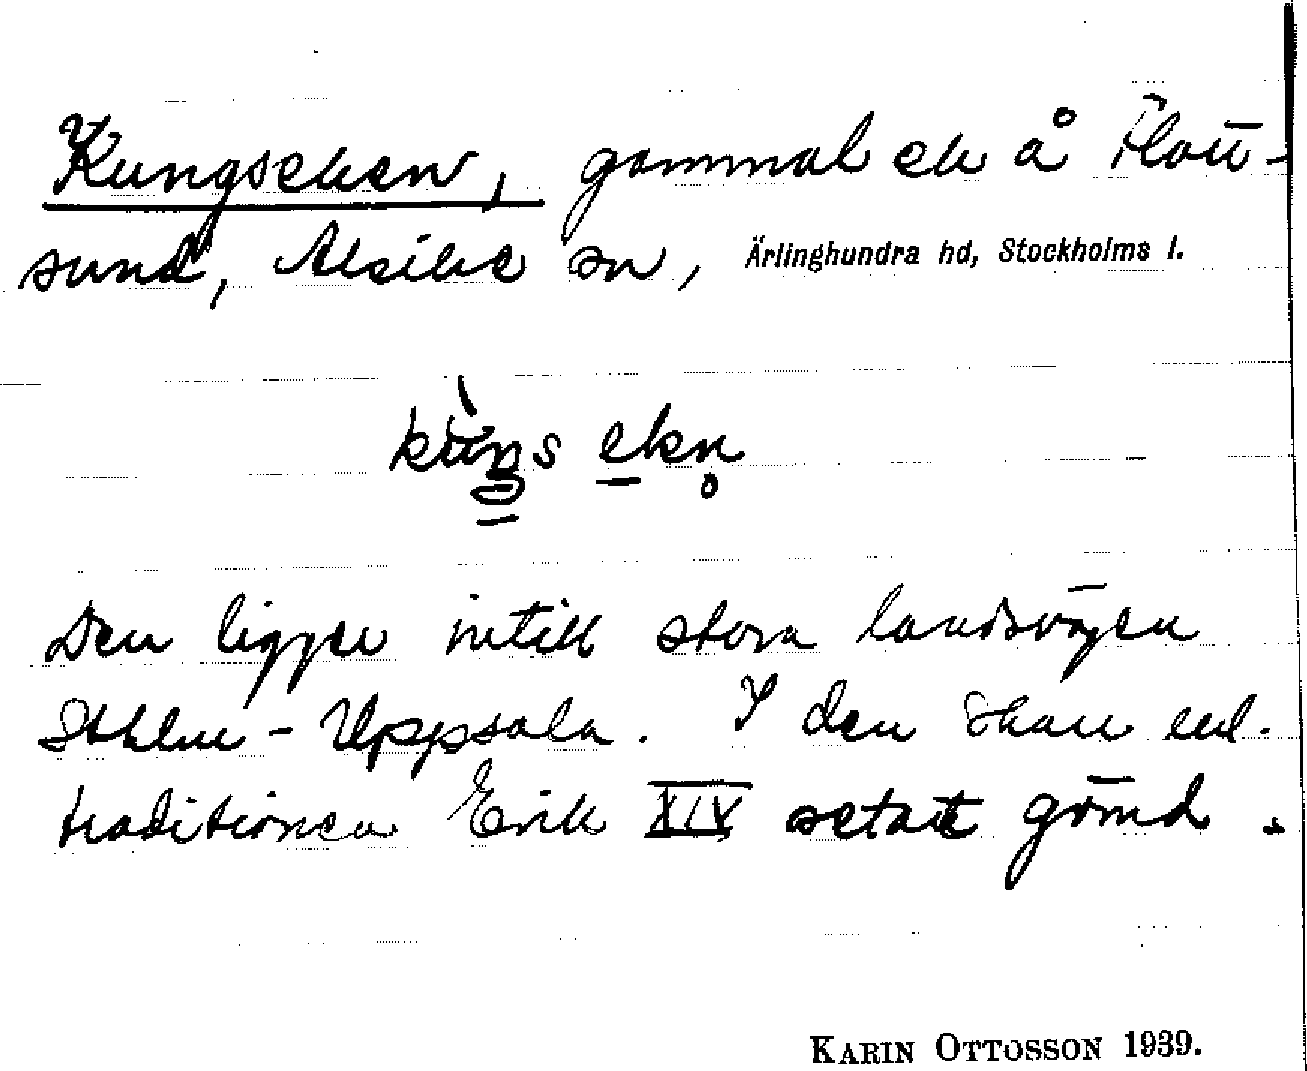 Kungseken, gammal ek å Flott-
sund, Alsike sn, Ärlinghundra hd, Stockholms l.
eken
Den ligger intill stora landsvägen
Sthlm - Uppsala. I den skall enl.
traditionen Erik XIV setat gömd.
KARIN OTTOSSON 1939.